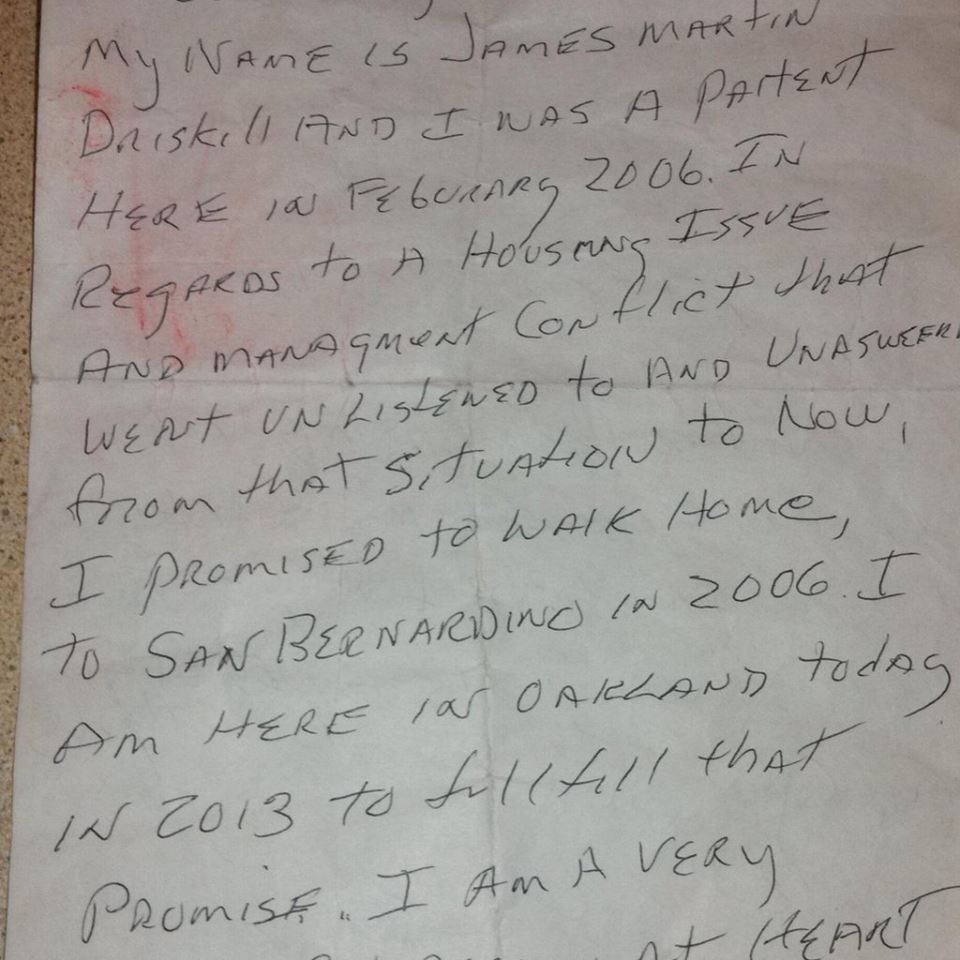 My NAME is JAMES MARTIN
Driskill AND I WAS A PAtiENT
HERE iN FEBURARy 2006. IN
REgARDS to A HOUSING ISSUE
AND MANAGMENT CONflict that
WENT UN LISTENED to AND UNASWEER
from that SiTUAtiON to NOW,
I PROMISED to WAlK Home,
to SAN BERNARDINO iN 2006. I
Am HERE iN OAKLAND todAy
iN 2013 to fullfill that
PROMISE. I Am A VERy
At HEART